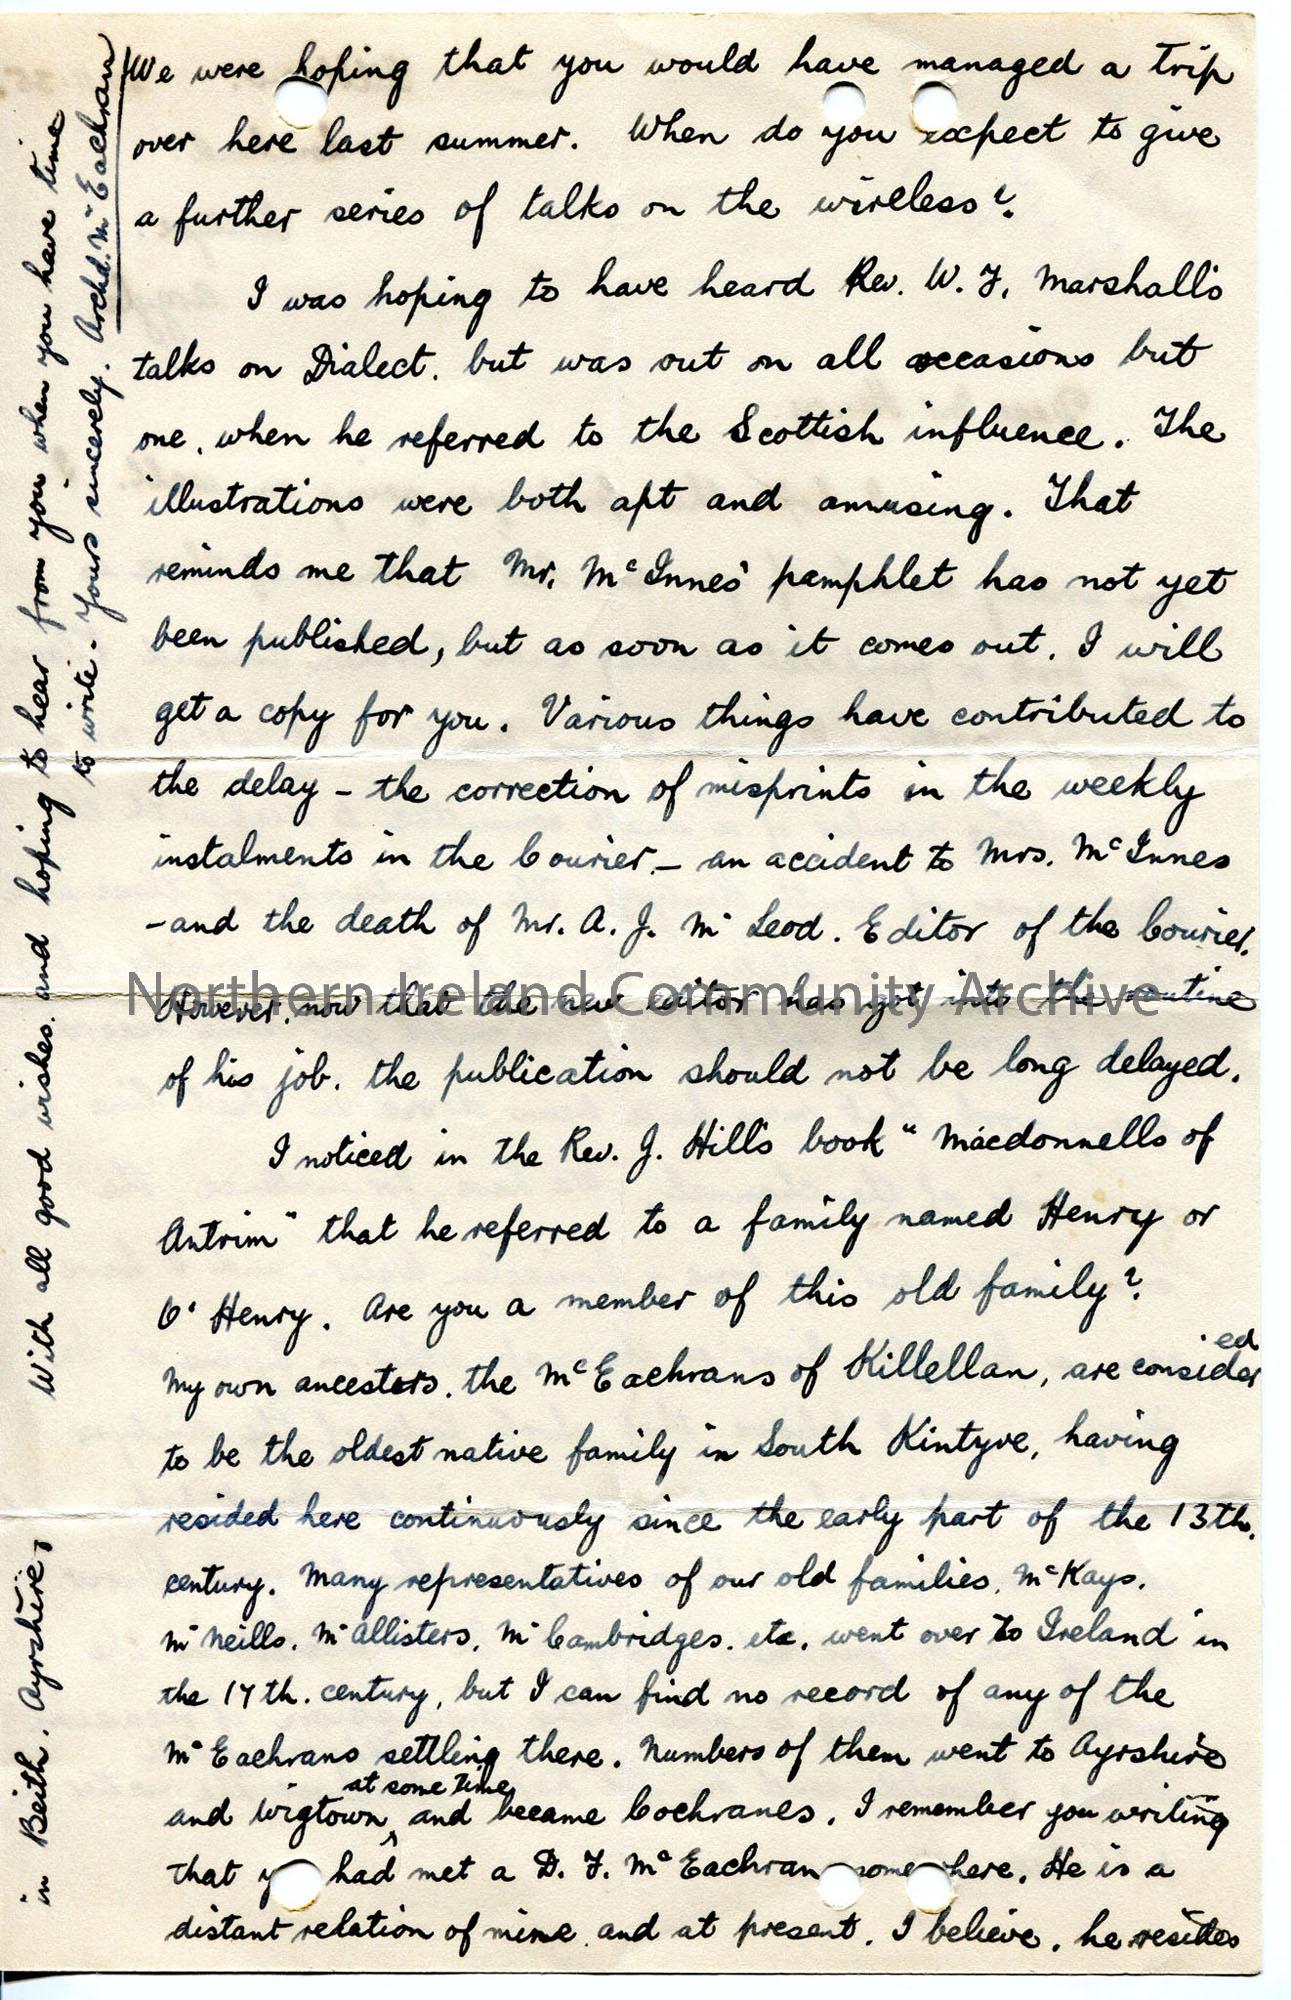 We were hoping that you would have managed a trip
over here last summer. When do you expect to give
a further series of talks on the wireless?
I was hoping to have heard Rev. W. F. Marshall's
talks on Dialect. but was out on all occasions but
one. when he referred to the Scottish influence. The
illustrations were both apt and amusing. That
reminds me that Mr. McInnes' pamphlet has not yet
been published, but as soon as it comes out. I will
get a copy for you. Various things have contributed to
the delay - the correction of misprints in the weekly
instalments in the Courier. - an accident to Mrs. McInnes
- and the death of Mr. A. J. McLeod. Editor of the Courier.
However. now that the new editor has got into the routine
of his job. the publication should not be long delayed.
I noticed in the Rev. J. Hill's book "Macdonnells of
Antrim" that he referred to a family named Henry or
O'Henry. Are you a member of this old family?
My own ancestors. the McEachrans of Killellan, are considered
to be the oldest native family in South Kintyre, having
resided here continuously since the early part of the 13th.
century. Many representatives of our old families. McKays.
McNeills. McAllisters. McCambridges. etc. went over to Ireland in
the 17th. century, but I can find no record of any of the
McEachrans settling there. Numbers of them went to Ayrshire
and Wigtown at some time and became Cochranes. I remember you writing
that y had met a D. F. McEachran somewhere. He is a
distant relation of mine. and at present. I believe. he resides
in Beith. Ayrshire.
With all good wishes. and hoping to hear from you when you have time
to write - Yours sincerely. Archd. McEachran
Northern Ireland Community Archive